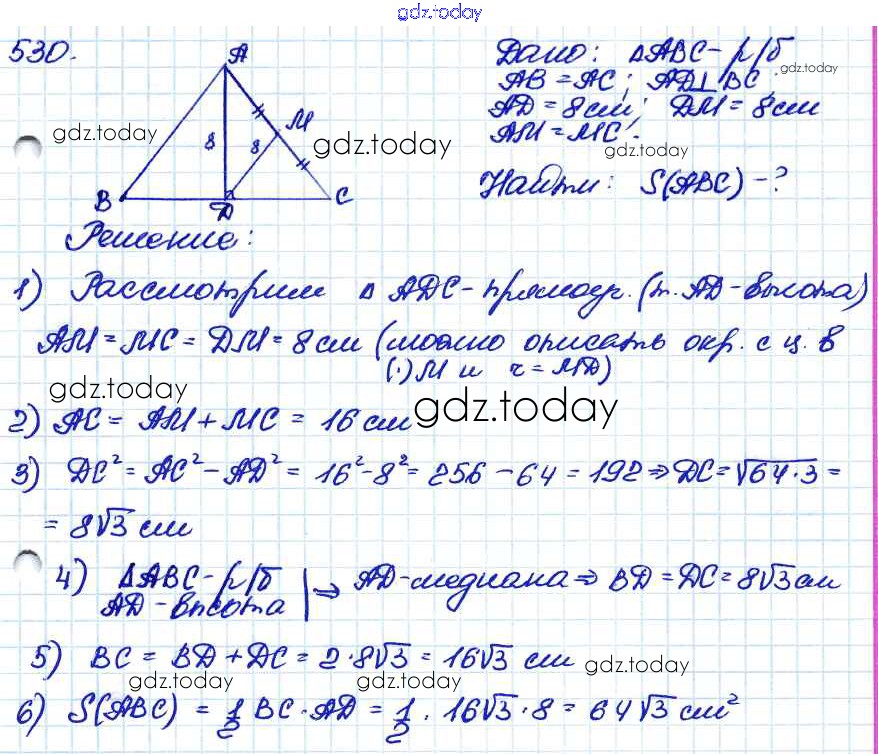 gdz.today
530.
A
M
8
8
B
D
C
gdz.today
gdz.today
Дано: ΔABC - р/б
AB = AC; AD⊥BC;
gdz.today
AD = 8 см; DM = 8 см
AM = MC.
gdz.today
Найти: S(ABC) - ?
Решение:
1) Рассмотрим Δ ADC - прямоуг. (т. AD - высота)
AM = MC = DM = 8 см (можно описать окр. с ц. в
(·) M и r = MD)
gdz.today
gdz.today
2) AC = AM + MC = 16 см
3) DC² = AC² - AD² = 16² - 8² = 256 - 64 = 192 ⇒ DC = √64·3 =
= 8√3 см
4) ΔABC - р/б
AD - высота | ⇒ AD - медиана ⇒ BD = DC = 8√3 см
5) BC = BD + DC = 2·8√3 = 16√3 см
gdz.today
gdz.today
gdz.today
6) S(ABC) = 1/2 BC·AD = 1/2 · 16√3·8 = 64√3 см²